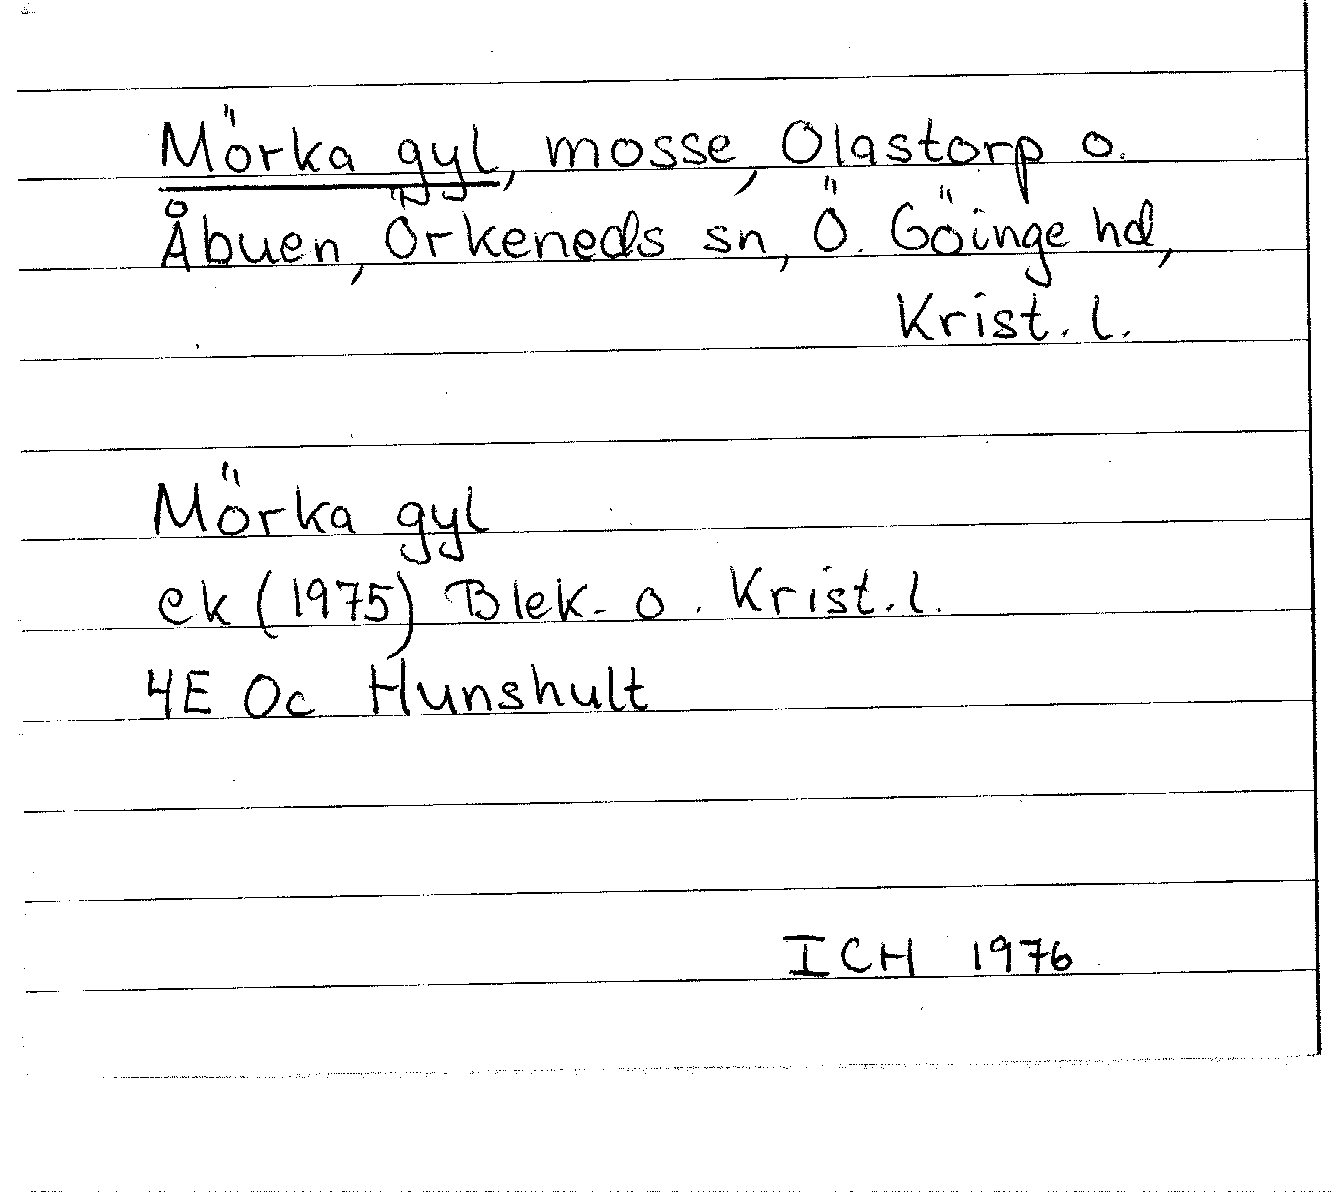 Mörka gyl, mosse, Olastorp o.
Åbuen, Örkeneds sn, Ö. Göinge hd,
Krist. l.
Mörka gyl
ek (1975) Blek- o. Krist. l.
4E Oc Hunshult
ICH 1976